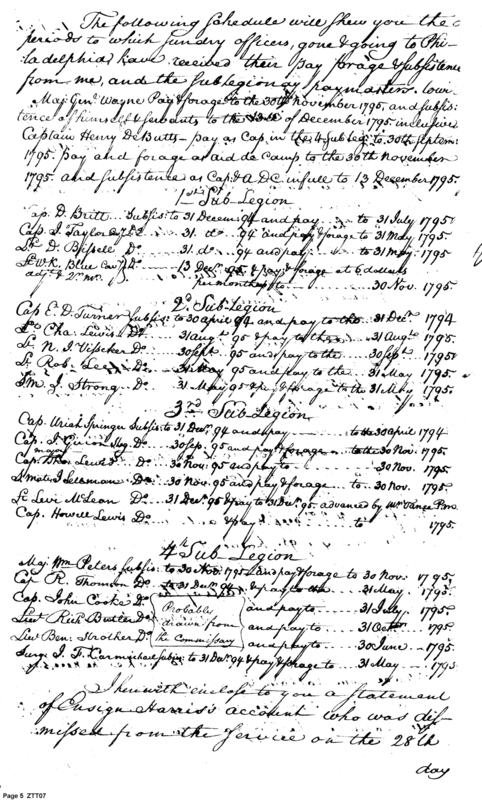 The following Schedule will shew you the
periods to which sundry officers, gone & going to Phi-
ladelphia, have received their pay forage & subsistence
from me, and the Sub Legionary paymasters.
Maj. Genl. Wayne Pay & forage to the 30th November 1795, and subsis-
tence of himself & servants to the of December 1795 inclusive
Captain Henry De Butts - pay as Cap. in the 4 Sub Leg. to 30th Septem:
1795. pay and forage as aid de Camp to the 30th November
1795. and subsistence as Capt. & A.D.C. in full to 13 December 1795.
1st Sub-Legion
Cap. D. Britt Subsis: to 31 Decem. 94 and pay to 31 July 1795
Cap. J. Taylor Do 31 do 94 and pay & forage to 31 May 1795
Lt. D. Bissell Do 31 do 94 and pay to 31 May 1795
Lt. Wm. K. Blue Cavy. Do 13 Decr. 95 & pay & forage at 6 dollars
adjt. & Qr. Mr. per month to 30 Nov. 1795
2d Sub-Legion
Cap E. D. Turner Subsis: to 30 april 94 and pay to the 31 Decr. 1794
Lt. Cha. Lewis Do 31 augt. 95 & pay to the 31 Augt. 1795
Lt. N. I. Visscher Do 30 Sept. 95 and pay to the 30 Sept. 1795
Lt. Rob. Lee Do 31 May 95 and pay to the 31 May 1795
J. Strong Do 31 May 95 & pay & forage to the 31 May 1795
3rd Sub Legion
Cap. Uriah Springer Subsis: to 31 Decr. 94 and pay to the 30 April 1794
Cap. I. Guion Do 30 Sep. 95 and pay & forage to the 30 Nov. 1795
Cap. Thos. Lewis Do 30 Nov. 95 and pay to 30 Nov. 1795
Surgn. mate J. Sellman Do 30 Nov. 95 and pay & forage to 30 Nov. 1795
Lt. Levi McLean Do 31 Decr. 95 & pay to 31 Decr. 95 advanced by Mr. Vance
Cap. Howell Lewis Do & pay to 1795
4th Sub-Legion
Maj. Wm. Peters Subsis: to 30 Nov. 1795 and pay & forage to 30 Nov. 1795
Cap. R. Thomson Do to 31 Decr. 94 & pay to the 31 May 1795
Cap. John Cooke Do Probably and pay to 31 July 1795
Lieut. Rich. Butler Do drawn from and pay to 31 Octr. 1795
Lieut. Ben. Strother Do the Commissary and pay to 30 June 1795
Surgn. J. F. Carmichael Subsis: to 31 Decr. 94 & pay & forage to 31 May 1795
I herewith enclose to you a statement
of Ensign Harris's account who was dis-
missed from the Service on the 28th
day
Page 5 ZTT07